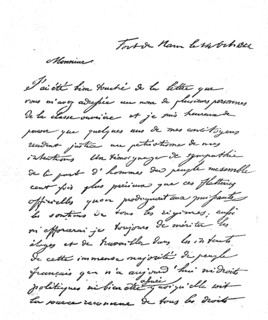 Fort de Ham le 14 Octobre
Monsieur
J'ai été bien touché de la lettre que
vous m'avez adressée au nom de plusieurs personnes
de la classe ouvrière et je suis heureux de
penser que quelques uns de mes concitoyens
rendent justice au patriotisme de mes
intentions. Un témoignage de sympathie
de la part d'hommes du peuple me semble
cent fois plus précieux que ces flatteries
officielles que prodiguent aux puissants
les soutiens de tous les régimes, aussi
m'efforcerai je toujours de mériter les
éloges et de travailler dans les intérêts
de cette immense majorité du peuple
français qui n'a aujourd'hui ni droits
politiques ni bien être assuré quoiqu'elle soit
la source reconnue de tous les droits